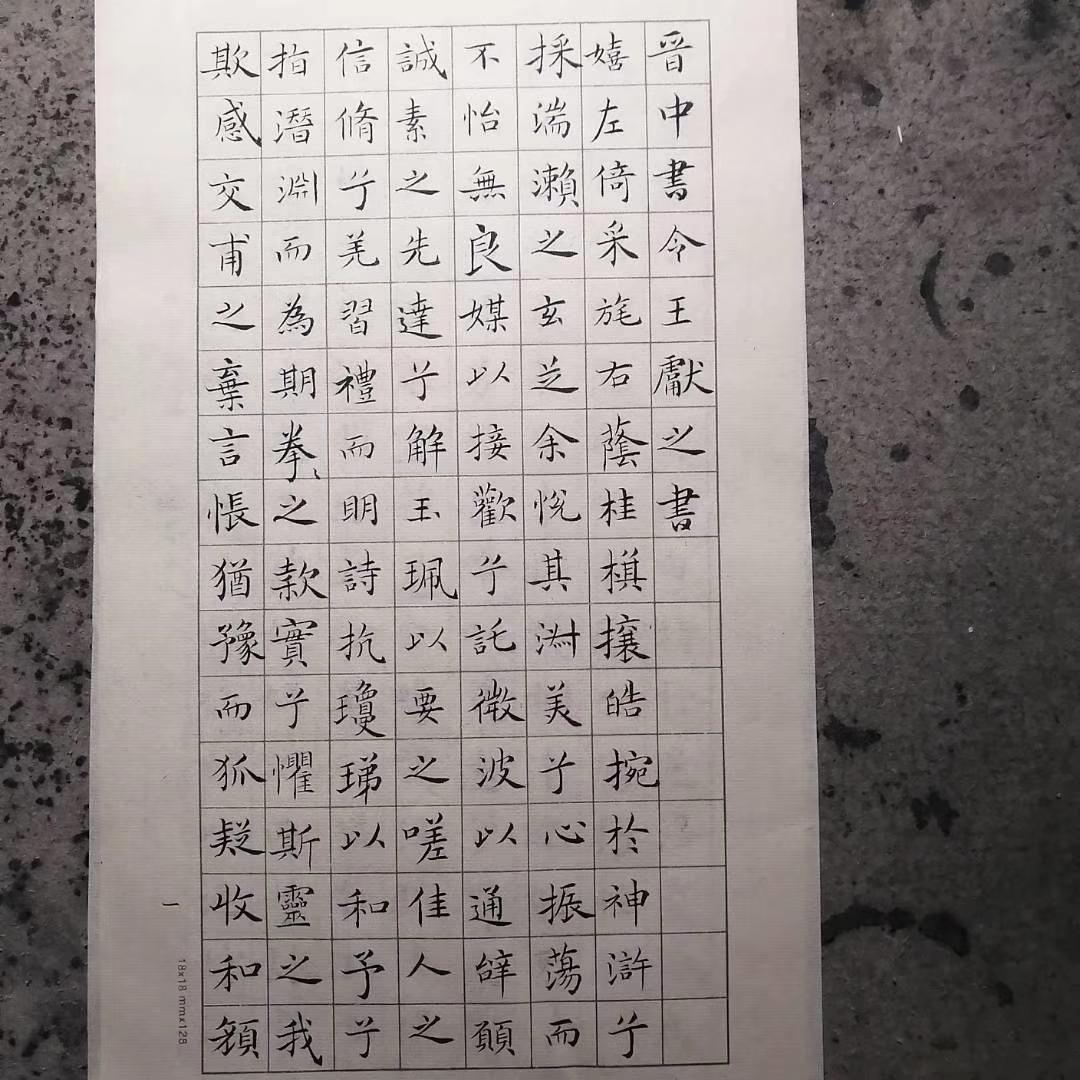 晋中書令王獻之書
嬉左倚采旄右蔭桂棋攘皓捥於神滸兮
採湍瀨之玄芝余悅其淑美兮心振蕩而
不怡無良媒以接歡兮託微波以通辞願
誠素之先達兮解玉珮以要之嗟佳人之
信脩兮羌習禮而明詩抗瓊珶以和予兮
指潛淵而為期拳〻之款實兮懼斯靈之我
欺感交甫之棄言悵猶豫而狐疑收和顏
18x18 mmx128